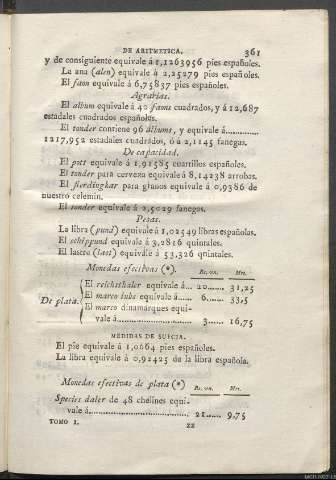 DE ARITMETICA. 361
y de consiguiente equivale á 1,1263956 pies españoles.
La ana (alen) equivale á 2,25279 pies españoles.
El faon equivale á 6,75837 pies españoles.
Agrarias.
El album equivale á 40 faons cuadrados, y á 12,687
estadales cuadrados españoles.
El tonder contiene 96 albums, y equivale á
1217,952 estadales cuadrados, ó á 2,1145 fanegas.
De capacidad.
El pott equivale á 1,91585 cuartillos españoles.
El tonder para cerveza equivale á 8,14238 arrobas.
El fierdingkar para granos equivale á 0,9386 de
nuestro celemin.
El tonder equivale á 2,5029 fanegas.
Pesas.
La libra (pund) equivale á 1,02549 libras españolas.
El schippund equivale á 3,2816 quintales.
El lastre (last) equivale á 53,326 quintales.
Monedas efectivas (*). Rs. vn. Mrs.
De plata. El reichsthaler equivale á... 20...... 31,25
El marco lubs equivale á..... 6...... 33,5
El marco dinamarques equi-
vale á..................... 3...... 16,75
MEDIDAS DE SUECIA.
El pie equivale á 1,0664 pies españoles.
La libra equivale á 0,92425 de la libra española.
Monedas efectivas de plata (*) Rs. vn. Mrs.
Species daler de 48 chelines equi-
vale á.............................. 21...... 9,75
TOMO I. ZZ